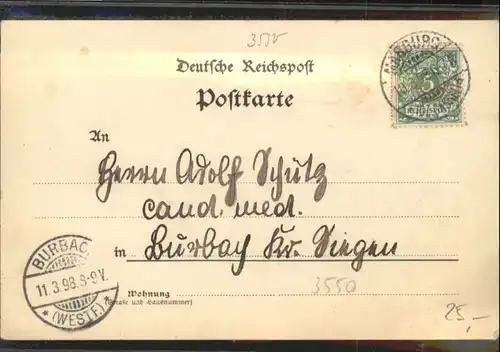 3550
Deutsche Reichspost
Postkarte
MARBURG
5
An
Herrn Adolf Schütz
cand. med.
in Burbach Kr. Siegen
BURBACH
11.3.98.8-9V.
* (WESTF.) *
3550
Wohnung
(Straße und Hausnummer)
25,-